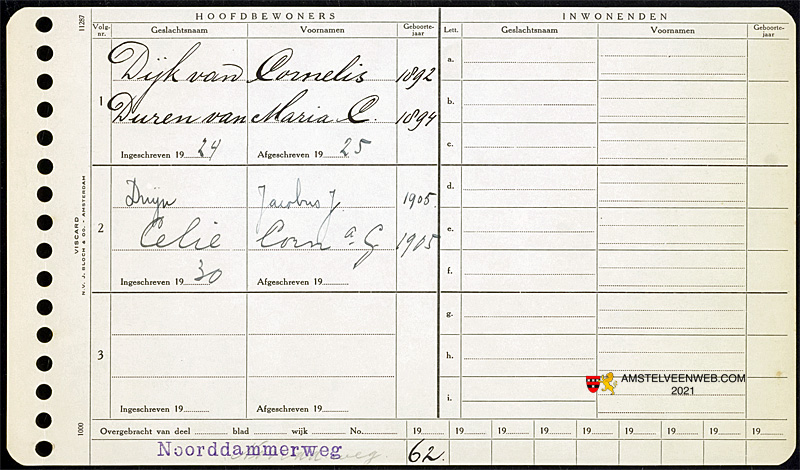 HOOFDBEWONERS
INWONENDEN
Volg-nr. Geslachtsnaam Voornamen Geboorte-jaar Lett. Geslachtsnaam Voornamen Geboorte-jaar
1
Dijk van Cornelis 1892
Duren van Maria C. 1894
Ingeschreven 1924 Afgeschreven 1925
2
Duyn Jacobus J. 1905.
Celie Corn a G 1905
Ingeschreven 1930 Afgeschreven 19
3
Ingeschreven 19 Afgeschreven 19
a.
b.
c.
d.
e.
f.
g.
h.
i.
Overgebracht van deel blad wijk No. 19 19 19 19 19 19 19 19 19
Noorddammerweg 62.
11287
VISCARD
N.V. J. BLOCH & CO. - AMSTERDAM
1000
AMSTELVEENWEB.COM
2021